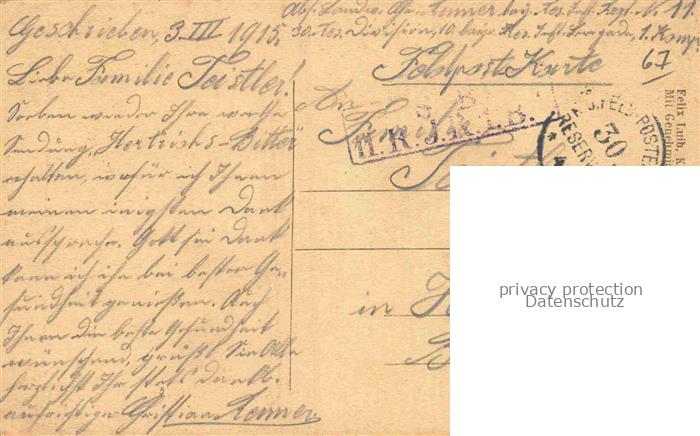 Geschrieben, 3. III 1915.
Liebe Familie Teistler!
Soeben wieder Ihre werte
Sendung, Hertrichs-Bitter
erhalten, wofür ich Ihnen
meinen innigsten Dank
ausspreche. Gott sei Dank
kann ich ihn bei bester Ge-
sundheit genießen. Auch
Ihnen die beste Gesundheit
wünschend, grüßt Sie Alle
herzlichst Ihr stets dankb.
aufrichtiger Christian Renner.
Abs. Landw. Renner bayr. Res. Inft. Regt. N. 11
30. Res. Division, 10. bayr. Res. Inft. Brigade, 1. Komp.
67
Feldpost Karte
An
S. B.
11. R. J. R. I. B.
Familie
in
FELD-POSTE
30
RESERV
Felix Luib, K
Mil Genehmi
privacy protection
Datenschutz